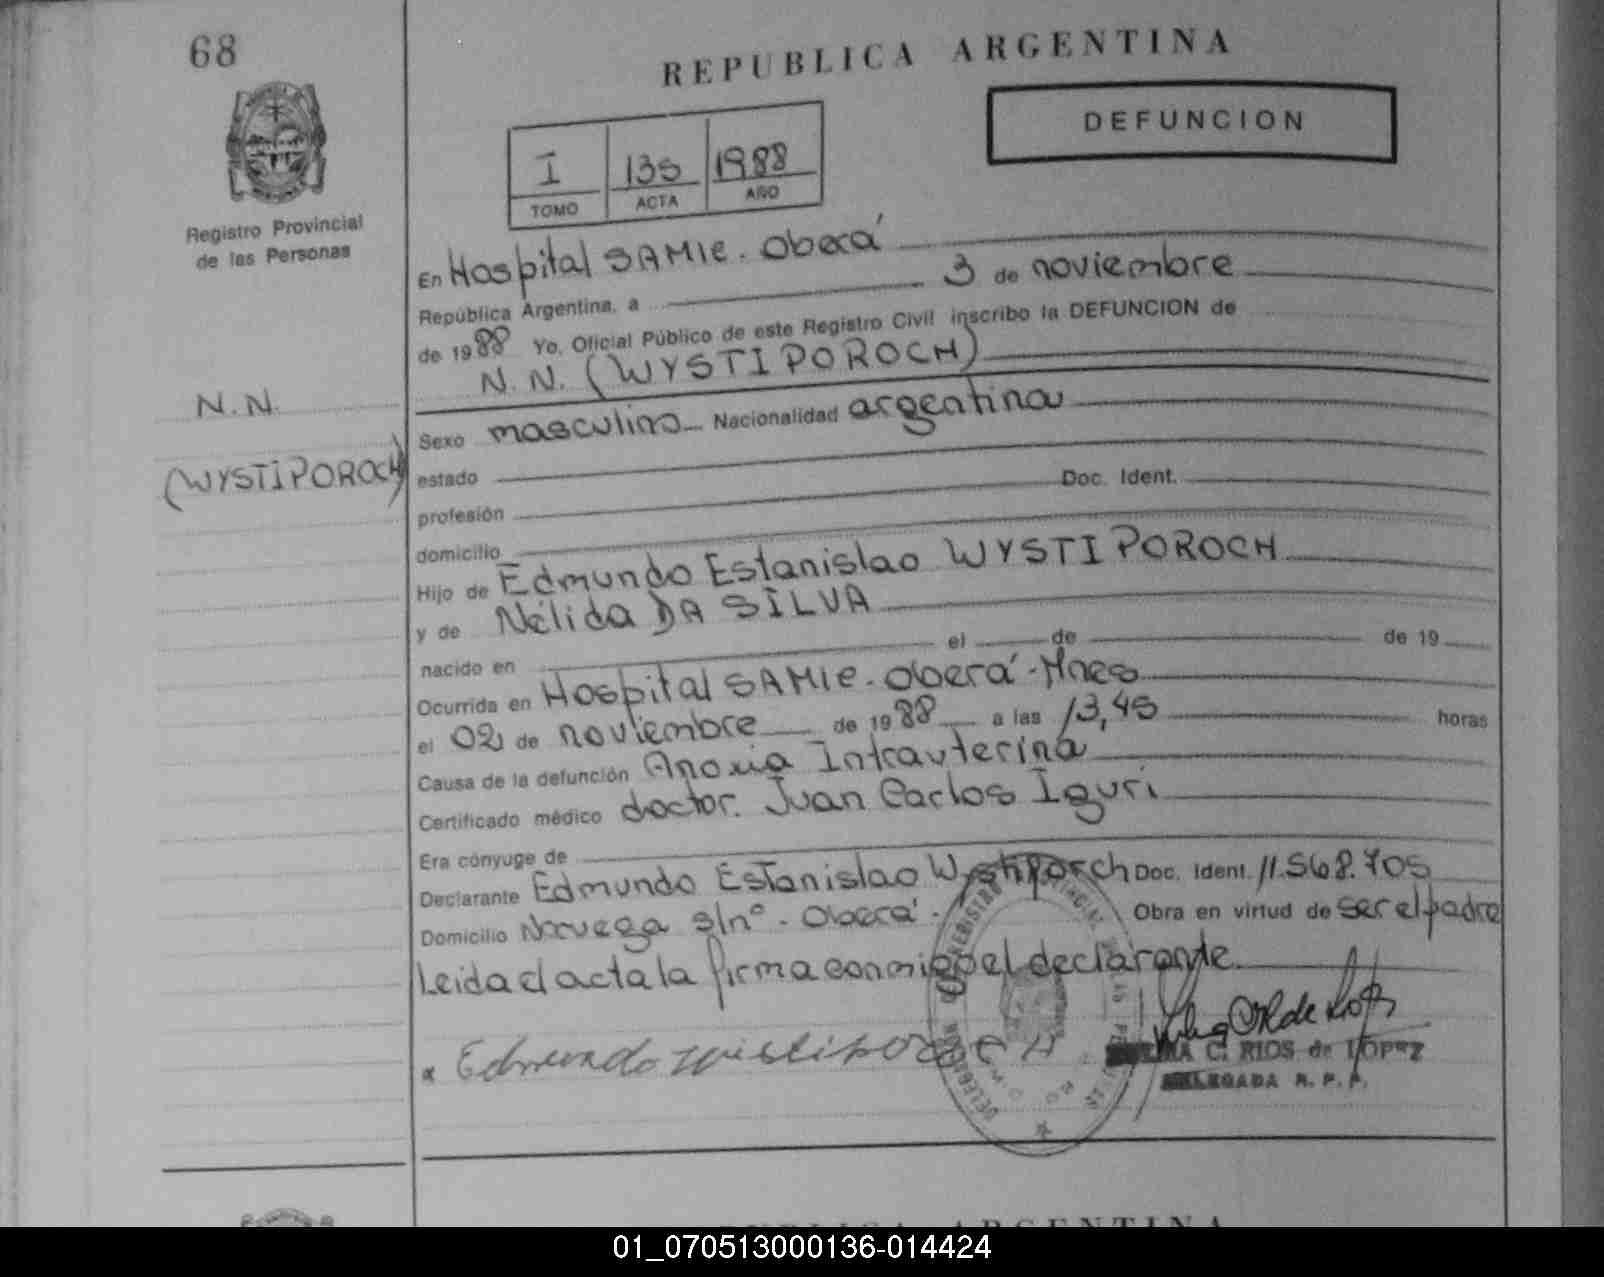 68
REPUBLICA ARGENTINA
DEFUNCION
I 135 1988
TOMO ACTA AÑO
Registro Provincial
de las Personas
En Hospital SAMIC. Oberá
República Argentina, a 3 de noviembre
de 1988 Yo, Oficial Público de este Registro Civil inscribo la DEFUNCION de
N.N. (WYSTIPOROCH)
N.N.
(WYSTIPOROCH)
Sexo masculino Nacionalidad argentina
estado
Doc. Ident.
profesión
domicilio
Hijo de Edmundo Estanislao WYSTIPOROCH
y de Nélida DA SILVA
nacido en el de de 19
Ocurrida en Hospital SAMIC. Oberá - Mnes
el 02 de noviembre de 1988 a las 13,45 horas
Causa de la defunción Anoxia Intrauterina
Certificado médico doctor. Juan Carlos Iguri
Era cónyuge de
Declarante Edmundo Estanislao Wystiporch Doc. Ident. 11.568.705
Domicilio Noruega s/nº - Oberá. Obra en virtud de ser el padre
Leida el acta la firma conmigo el declarante
x Edmundo wistiporocH
C. RIOS de LOPEZ
DELEGADA R. P. P.
REPUBLICA ARGENTINA
01_070513000136-014424